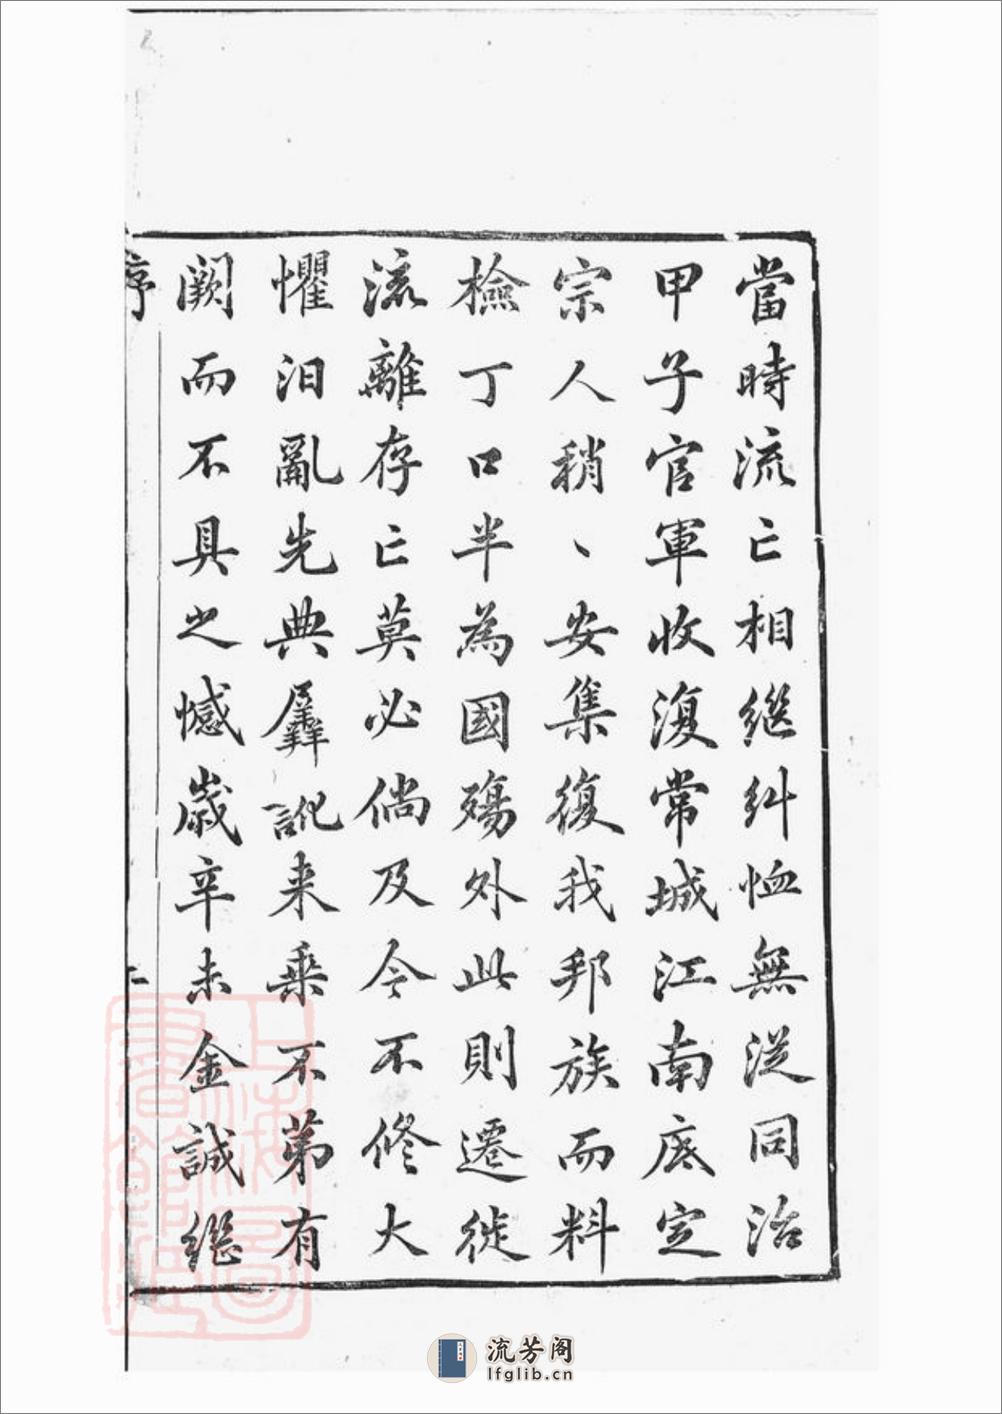 當時流亡相繼糾恤無從同治
甲子官軍收復常城江南底定
宗人稍丶安集復我邦族而料
檢丁口半為國殤外此則遷徙
流離存亡莫必倘及今不修大
懼汩亂先典羼訛来乘不第有
闕而不具之憾歲辛未金誠繼
序
二
上海圖書館藏
流芳阁
lfglib.cn